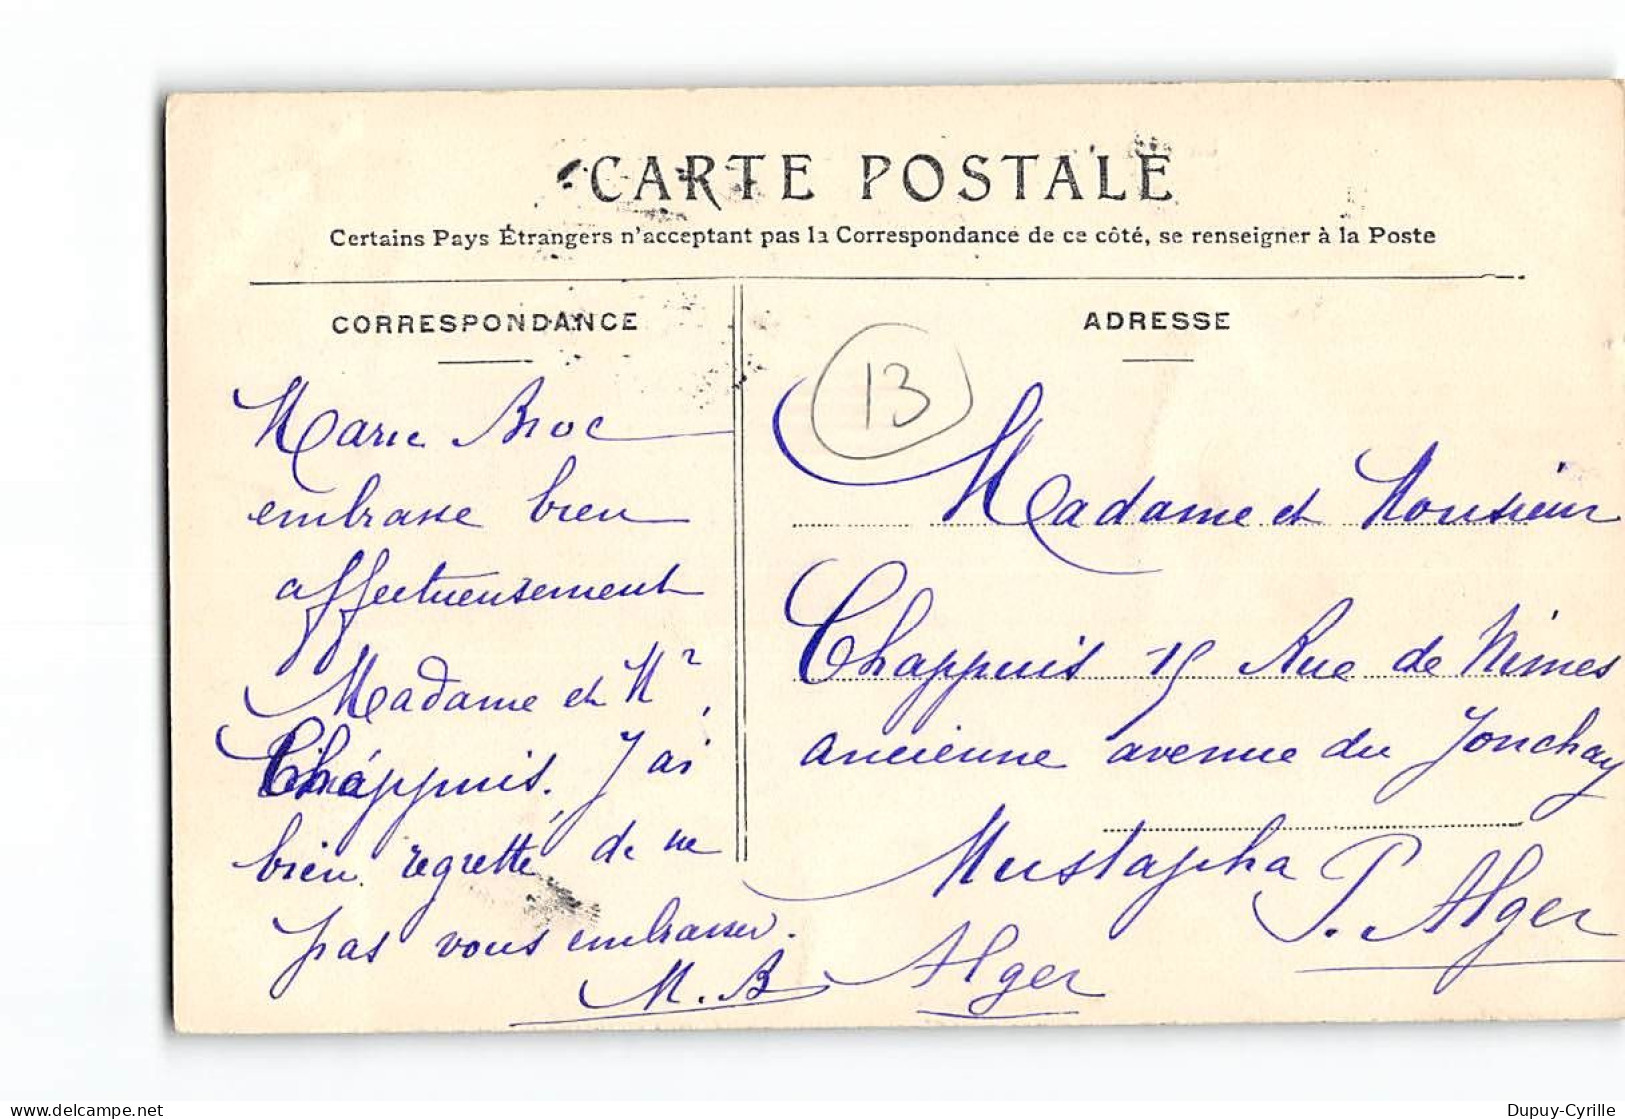 CARTE POSTALE
Certains Pays Étrangers n'acceptant pas la Correspondance de ce côté, se renseigner à la Poste
CORRESPONDANCE
Marie Broc
embrasse bien
affectueusement
Madame et Mr
Chappuis. J'ai
bien regretté de ne
pas vous embrasser.
M. B
ADRESSE
13
Madame et Monsieur
Chappuis 15 Rue de Nimes
ancienne avenue du Jonchay
Mustapha P. Alger
Alger
Dupuy-Cyrille